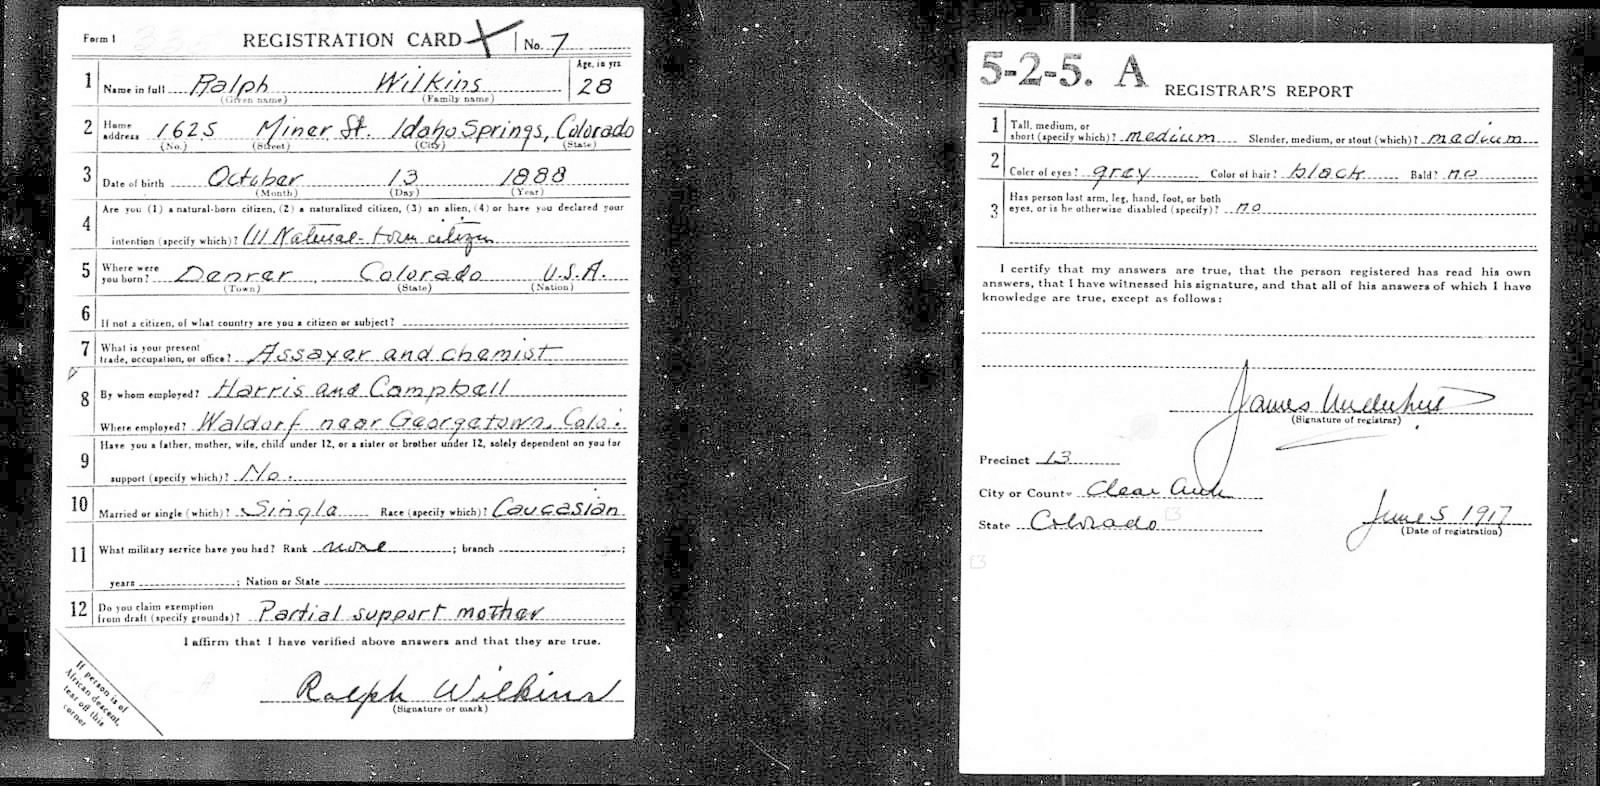 Form 1 REGISTRATION CARD X No. 7
1 Name in full Ralph Wilkins Age, in yrs 28
(Given name) (Family name)
2 Home address 1625 Miner St. Idaho Springs, Colorado
(No.) (Street) (City) (State)
3 Date of birth October 13 1888
(Month) (Day) (Year)
4 Are you (1) a natural-born citizen, (2) a naturalized citizen, (3) an alien, (4) or have you declared your
intention (specify which)? (1) Natural-born citizen
5 Where were you born? Denver Colorado U.S.A.
(Town) (State) (Nation)
6 If not a citizen, of what country are you a citizen or subject?
7 What is your present trade, occupation, or office? Assayer and chemist
8 By whom employed? Harris and Campbell
Where employed? Waldorf near Georgetown, Colo.
9 Have you a father, mother, wife, child under 12, or a sister or brother under 12, solely dependent on you for
support (specify which)? No.
10 Married or single (which)? Single Race (specify which)? Caucasian
11 What military service have you had? Rank none ; branch ;
years ; Nation or State
12 Do you claim exemption from draft (specify grounds)? Partial support mother
I affirm that I have verified above answers and that they are true.
Ralph Wilkins
(Signature or mark)
If person is of
African descent,
tear off this
corner
5-2-5. A REGISTRAR'S REPORT
1 Tall, medium, or short (specify which)? medium Slender, medium, or stout (which)? medium
2 Color of eyes? gray Color of hair? black Bald? no
3 Has person lost arm, leg, hand, foot, or both
eyes, or is he otherwise disabled (specify)? no
I certify that my answers are true, that the person registered has read his own
answers, that I have witnessed his signature, and that all of his answers of which I have
knowledge are true, except as follows:
James Underhill
(Signature of registrar)
Precinct 13
City or County Clear Creek
State Colorado
June 5 1917
(Date of registration)